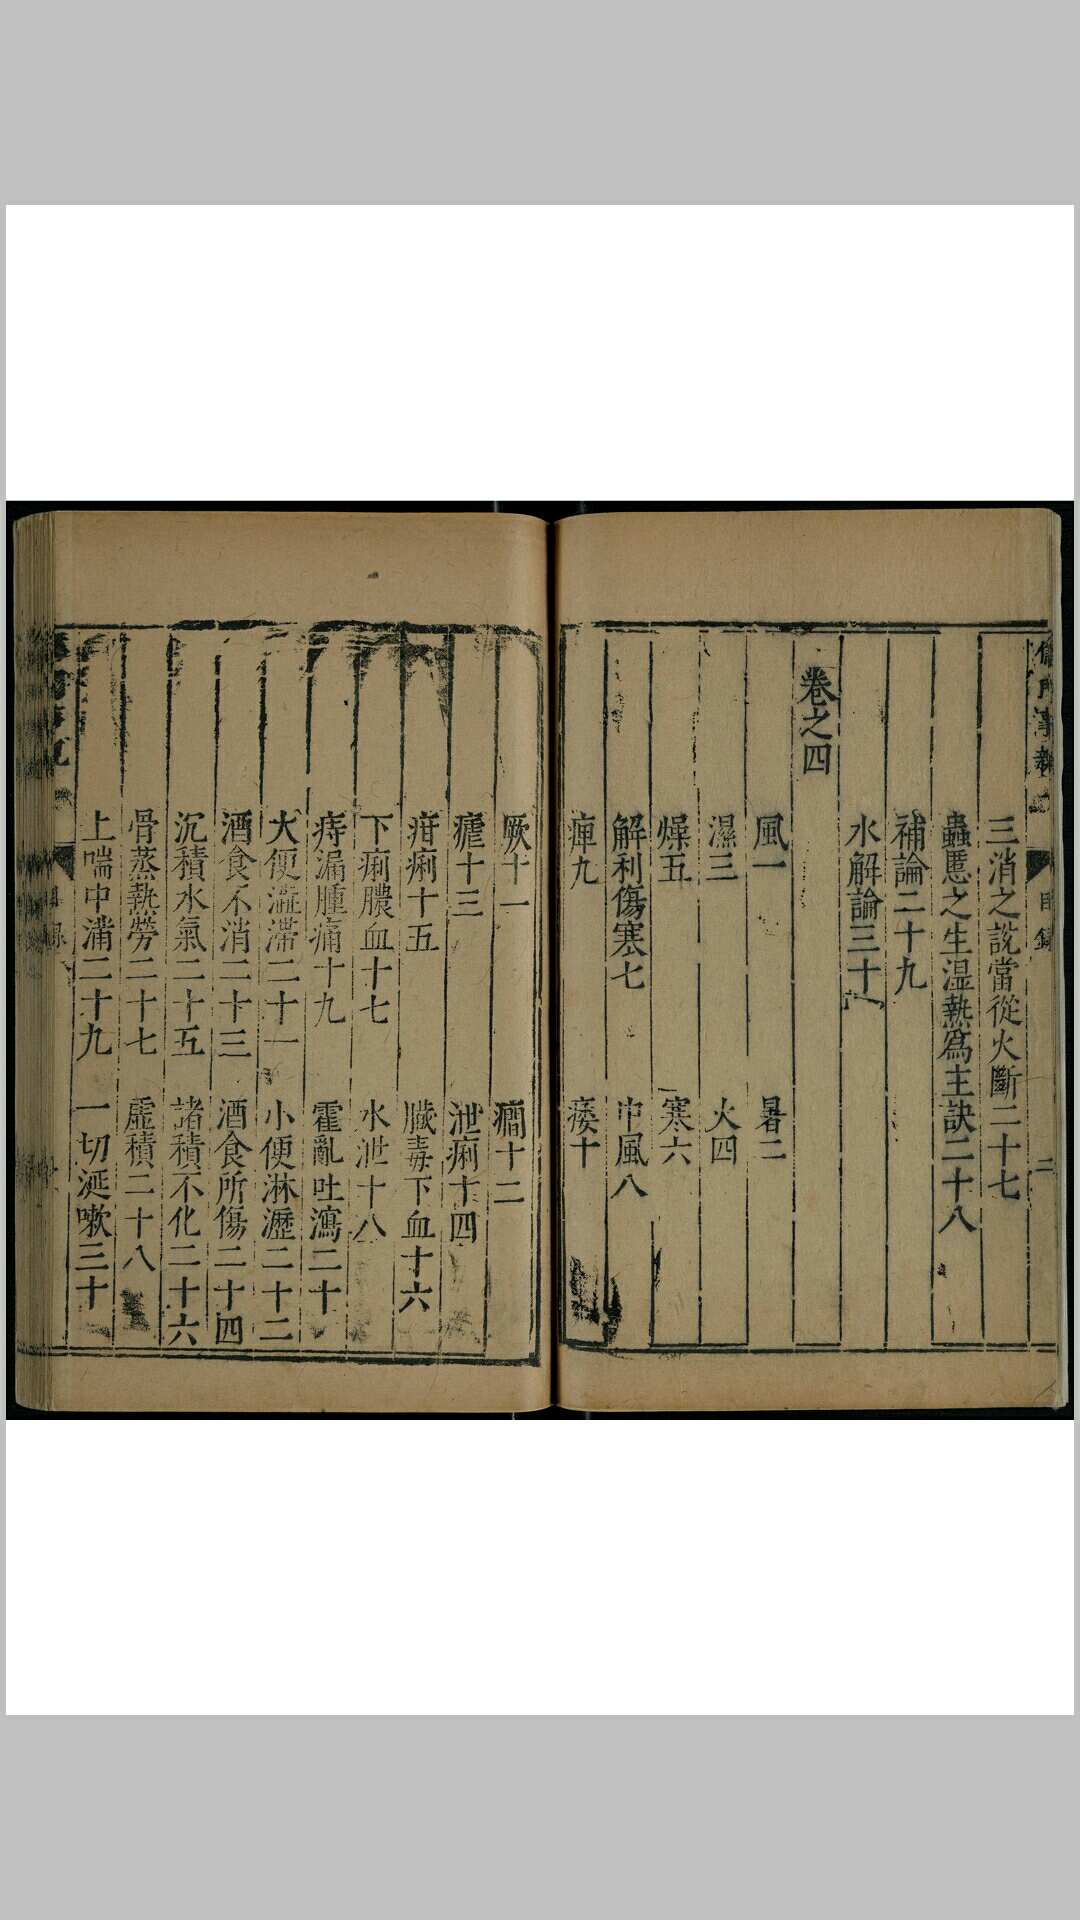 儒門事親
目錄
二
三消之說當從火斷二十七
蟲䘌之生湿熱爲主訣二十八
補論二十九
水解論三十
卷之四
風一 暑二
濕三 火四
燥五 寒六
解利傷寒七 中風八
痺九 痿十
厥十一 癎十二
瘧十三 泄痢十四
疳痢十五 臟毒下血十六
下痢膿血十七 水泄十八
痔漏腫痛十九 霍亂吐瀉二十
大便澁滯二十一 小便淋瀝二十二
酒食不消二十三 酒食所傷二十四
沉積水氣二十五 諸積不化二十六
骨蒸熱勞二十七 虛積二十八
上喘中滿二十九 一切涎嗽三十